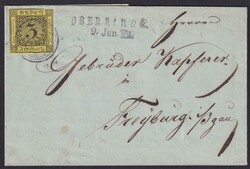 BADEN
3
OBERKIRCH
9. Jun.
Herren
Gebrüder Kapferer
in
Freyburg i/Bgau